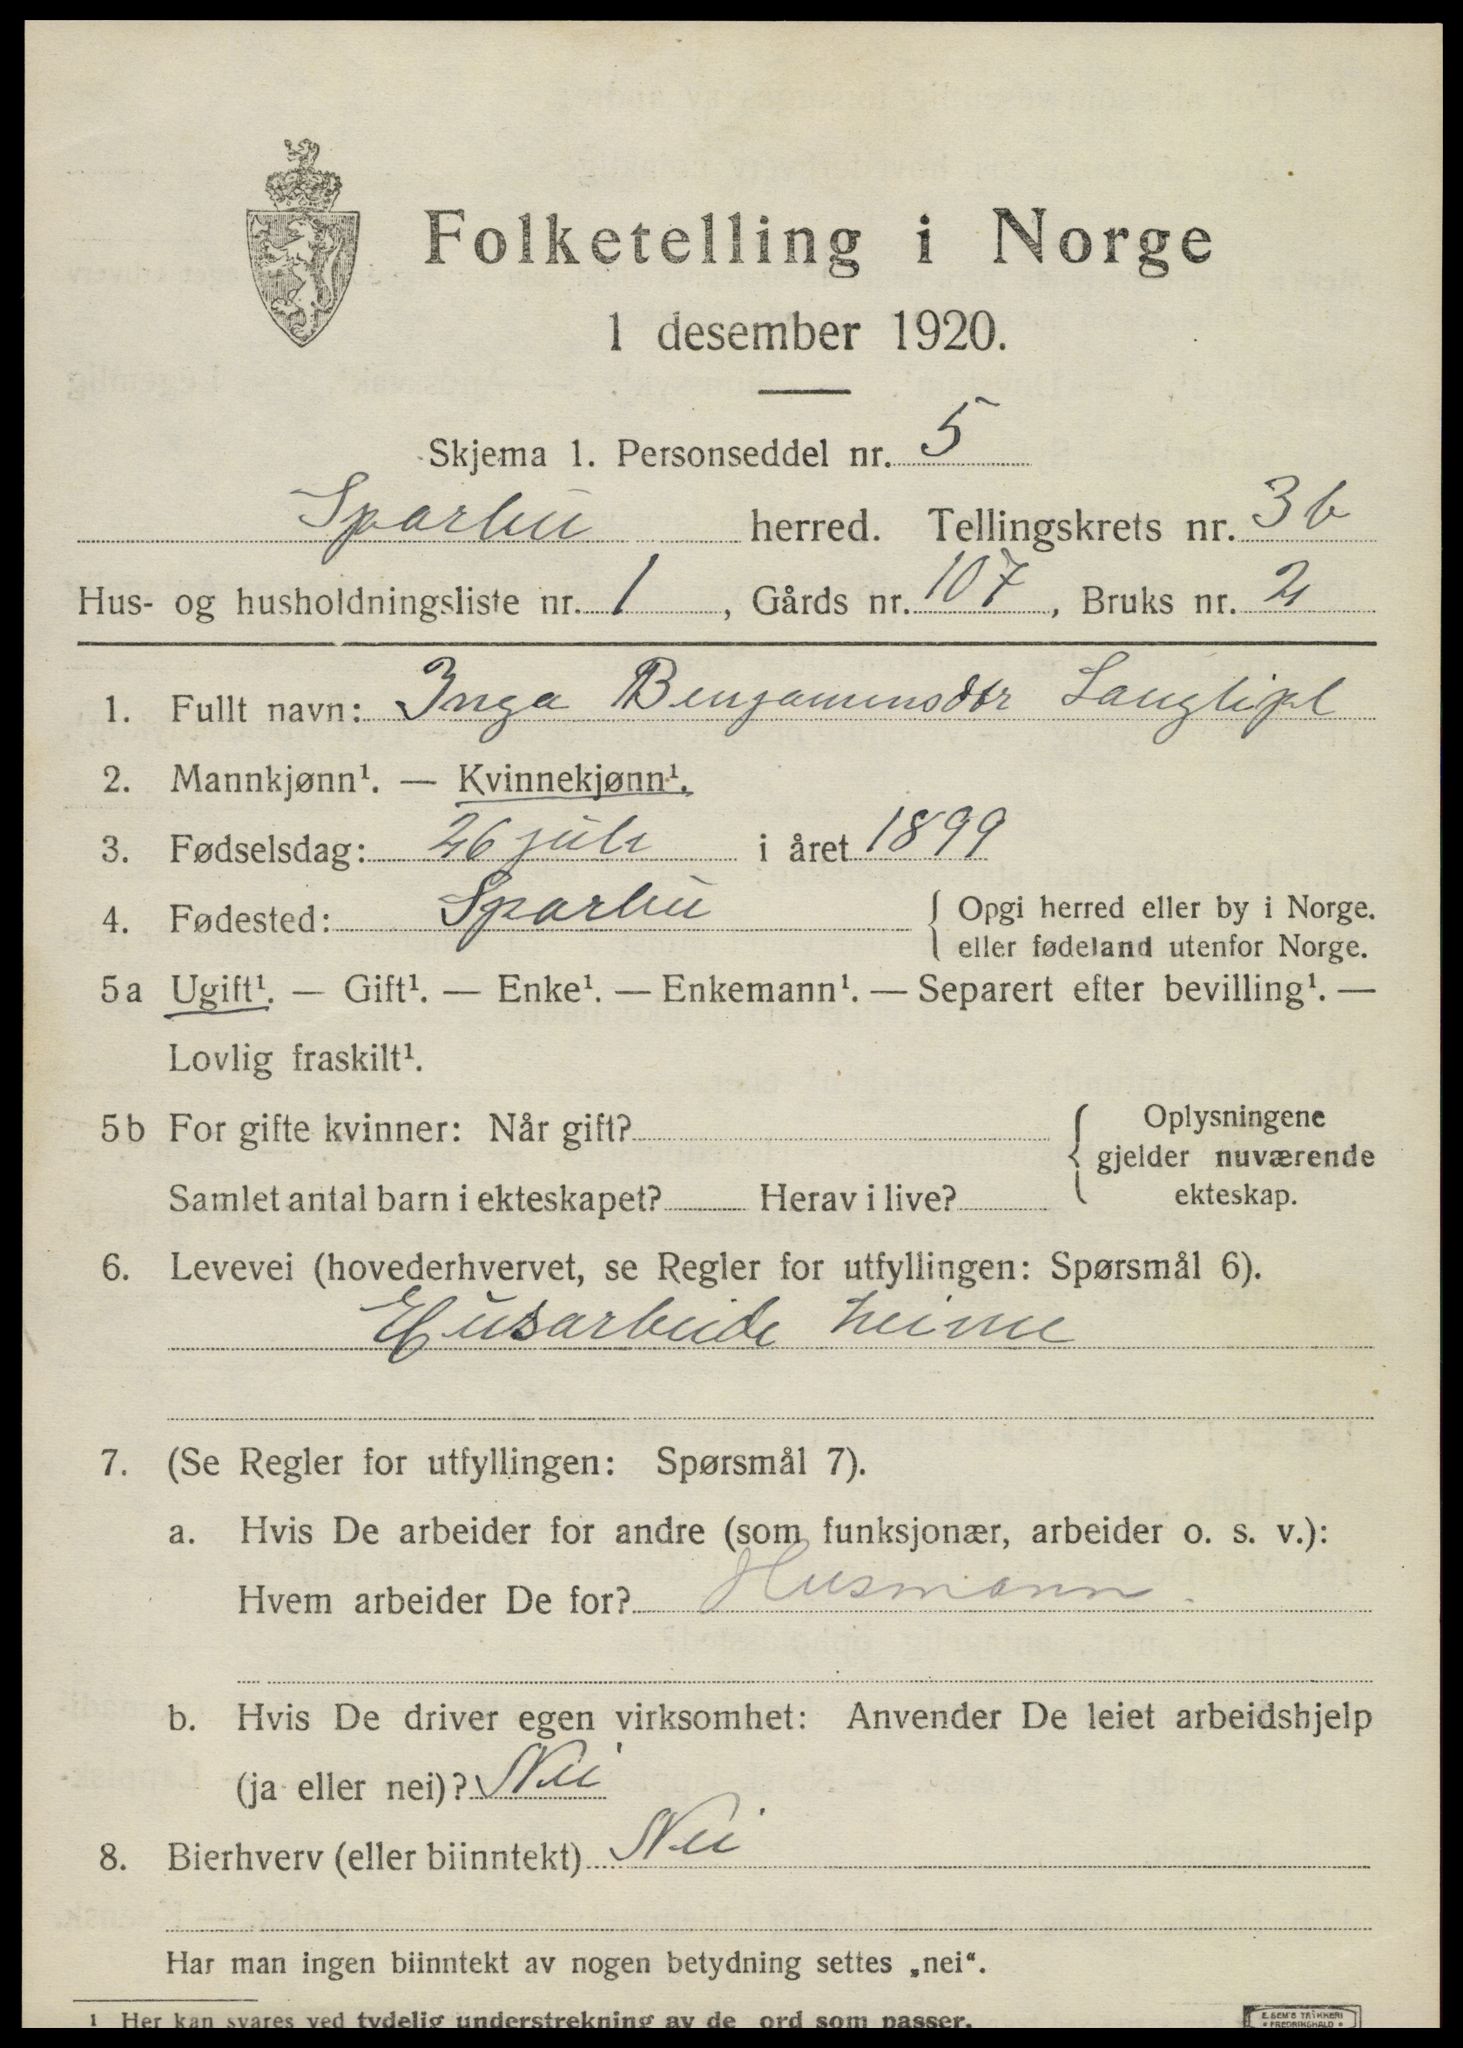 Folketelling i Norge
1 desember 1920.
Skjema 1. Personseddel nr. 5
Sparbu herred. Tellingskrets nr. 3b
Hus- og husholdningsliste nr. 1, Gårds nr. 107, Bruks nr. 2
1. Fullt navn: Inga Benjaminsdtr
2. Mannkjønn¹. — Kvinnekjønn¹.
3. Fødselsdag: 26 juli i året 1899
4. Fødested: Sparbu { Opgi herred eller by i Norge.
eller fødeland utenfor Norge.
5a Ugift¹. — Gift¹. — Enke¹. — Enkemann¹. — Separert efter bevilling¹. —
Lovlig fraskilt¹.
5b For gifte kvinner: Når gift? { Oplysningene
gjelder nuværende
Samlet antal barn i ekteskapet? Herav i live? ekteskap.
6. Levevei (hovederhvervet, se Regler for utfyllingen: Spørsmål 6).
Husarbeide heime
7. (Se Regler for utfyllingen: Spørsmål 7).
a. Hvis De arbeider for andre (som funksjonær, arbeider o. s. v.):
Hvem arbeider De for? Husmann.
b. Hvis De driver egen virksomhet: Anvender De leiet arbeidshjelp
(ja eller nei)? Nei
8. Bierhverv (eller biinntekt) Nei
Har man ingen biinntekt av nogen betydning settes „nei“.
¹ Her kan svares ved tydelig understrekning av de ord som passer.
E. SEM'S TRYKKERI
FREDRIKSHALD